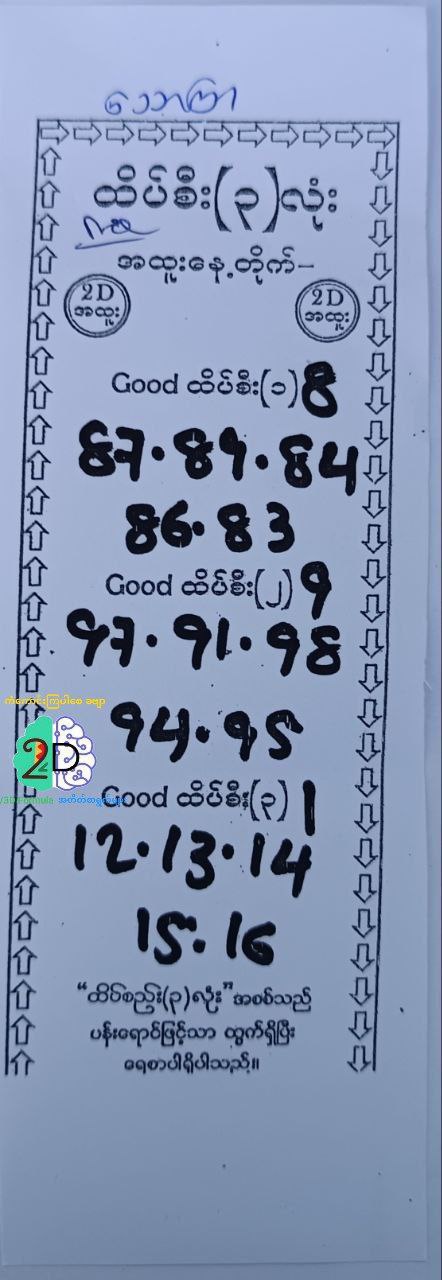 သောကြာ
ထိပ်စီး(၃)လုံး
အထူးနေ့တိုက်-
2D
အထူး
2D
အထူး
Good ထိပ်စီး(၁) 8
87·89·84
86·83
Good ထိပ်စီး(၂) 9
97·91·98
94·95
ကံကောင်းကြပါစေ ခဗျာ
2D
Good ထိပ်စီး(၃) 1
12·13·14
15·16
“ထိပ်စည်း(၃)လုံး”အစစ်သည်
ပန်းရောင်ဖြင့်သာ ထွက်ရှိပြီး
ရေစာပါရှိပါသည်။